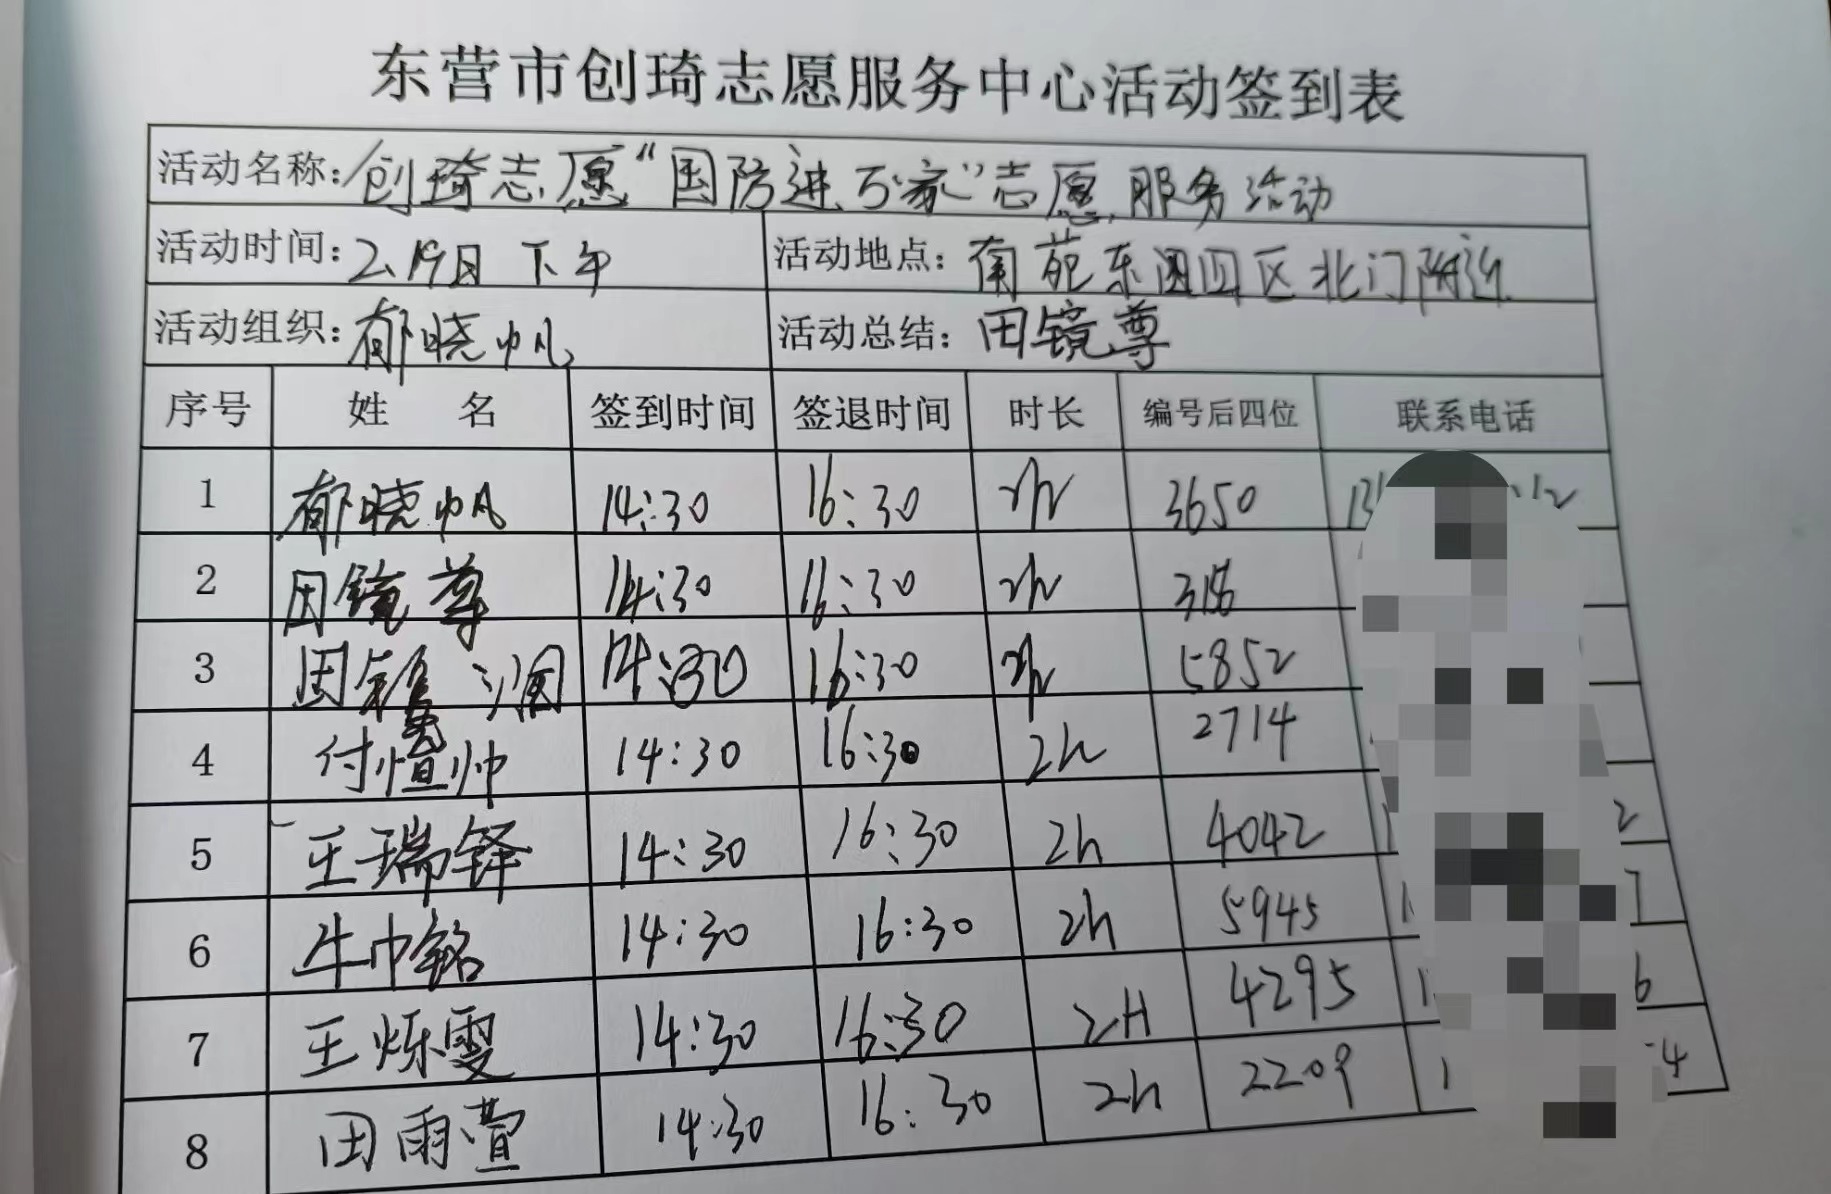 东营市创琦志愿服务中心活动签到表
活动名称:创琦志愿“国防进万家”志愿服务活动
活动时间:2.19日 下午 活动地点:南苑东园四区北门附近
活动组织:郁晓帆 活动总结:田镜尊
序号 姓 名 签到时间 签退时间 时长 编号后四位 联系电话
1 郁晓帆 14:30 16:30 2h 3650
2 田镜尊 14:30 16:30 2h
3 14:30 16:30 2h 5852
4 付恒帅 14:30 16:30 2h 2714
5 王瑞铎 14:30 16:30 2h 4042
6 牛巾铭 14:30 16:30 2h 5945
7 王烁雯 14:30 16:30 2H 4295
8 田雨萱 14:30 16:30 2h 2209